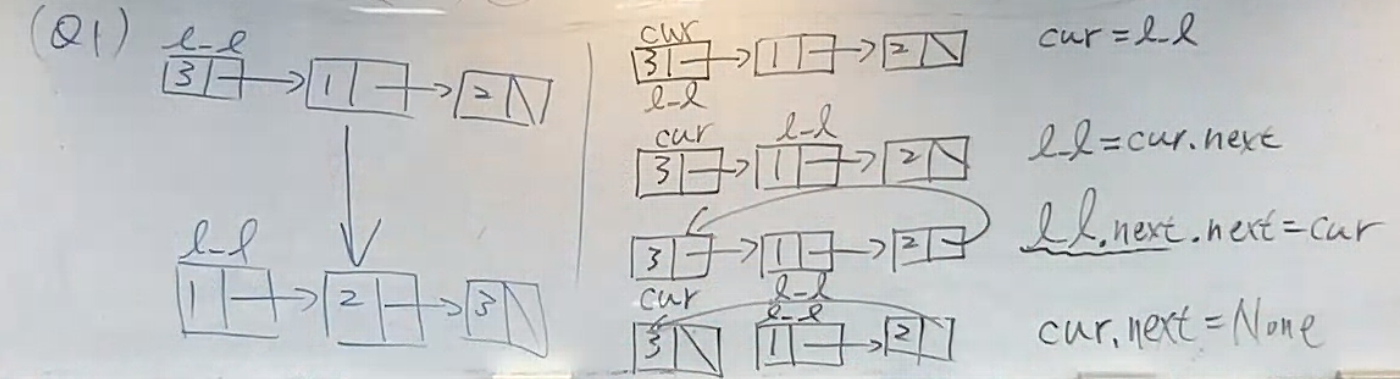 (Q1)
l-l
3 1 2
l-l
1 2 3
cur
3 1 2
l-l
cur = l-l
cur l-l
3 1 2
l-l = cur.next
3 1 2
cur l-l
l-l.next.next = cur
l-l
3 1 2
cur.next = None